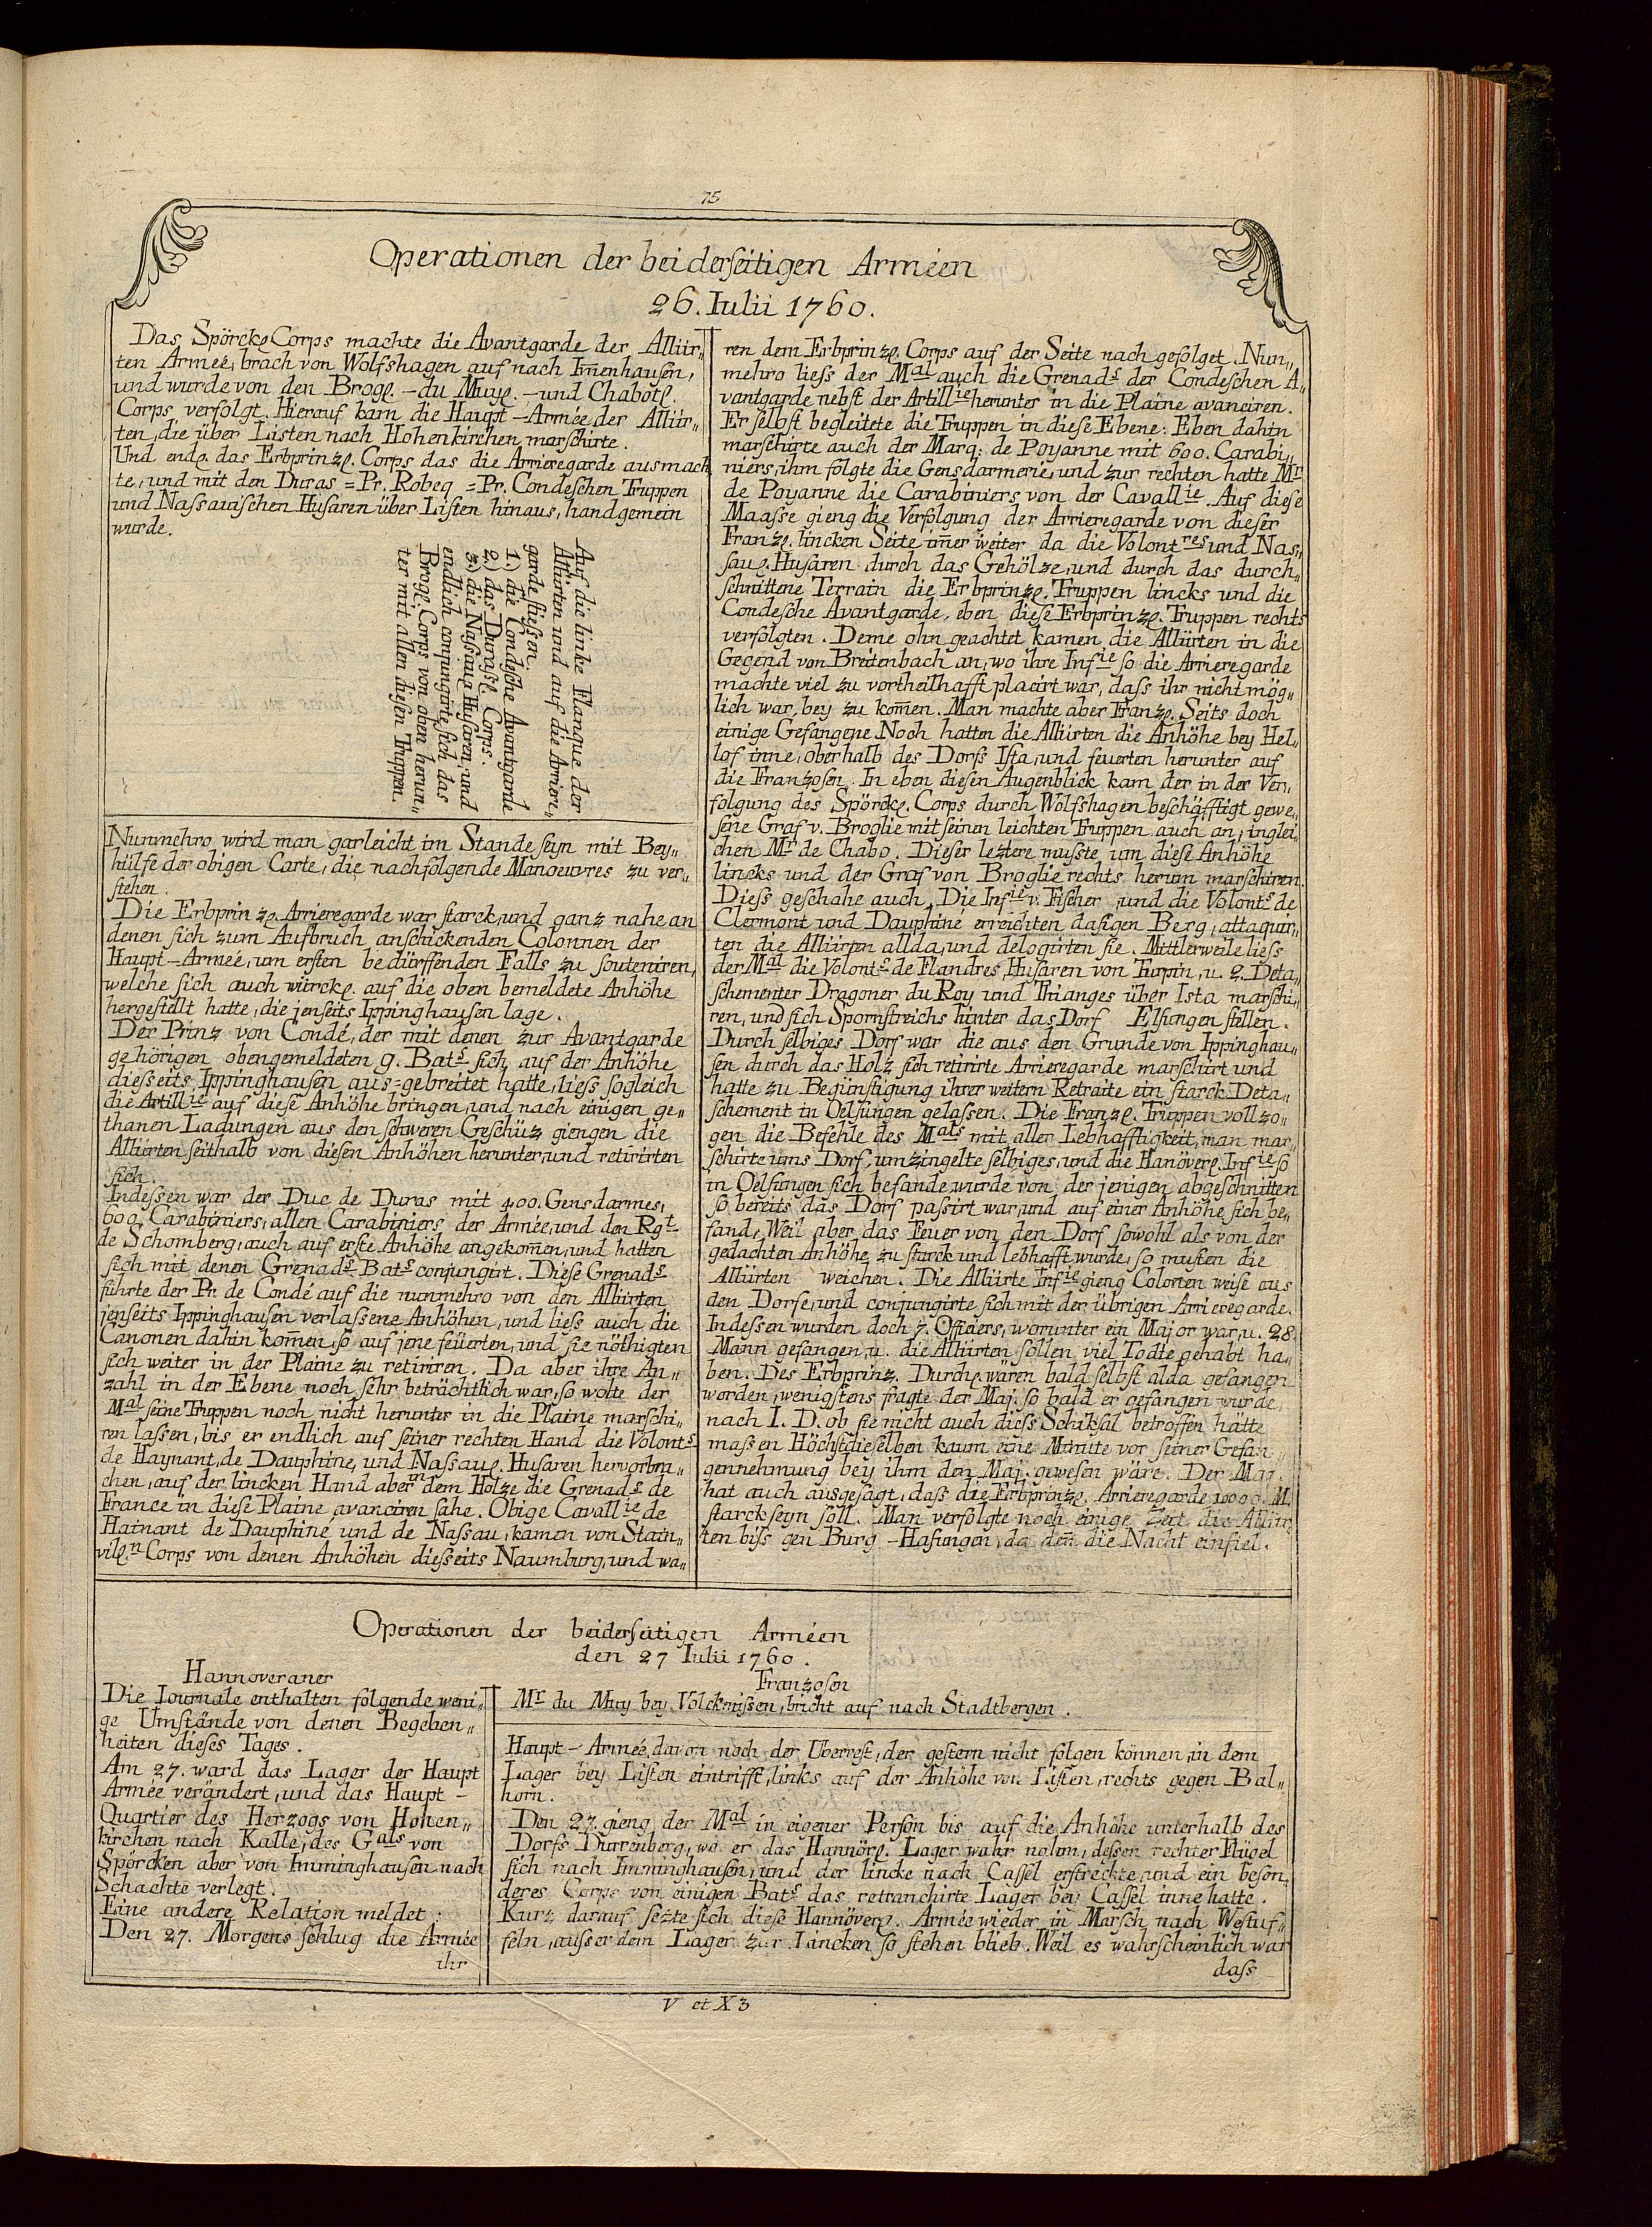 75
Operationen der beiderseitigen Arméen
26. Iulii 1760.
Das Spörckl. Corps machte die Avantgarde der Alliir„
ten Armeé, brach von Wolfshagen auf nach Im̄enhausen,
und wurde von den Brogl. - du Muyl. - und Chabotl.
Corps verfolgt. Hierauf kam die Haupt-Armée der Alliir„
ten, die über Listen nach Hohenkirchen marschirte.
Und endl. das Erbprinzl. Corps das die Arrieregarde ausmach
te, und mit den Duras = Pr. Robeq = Pr. Condeschen Truppen
und Nassauischen Husaren über Listen hinaus, handgemein
wurde.
Auf die linke Flanque der
Alliirten und auf die Arrier„
garde stiesen.
1.) die Condesche Avantgarde
2.) das Durassl. Corps.
3.) die Nassauл Husaren, und
endlich conjungirte sich das
Brogl. Corps von oben herun„
ter mit allen diesen Truppen.
Nunmehro wird man garleicht im Stande seyn mit Bey„
hülfe der obigen Carte, die nachfolgende Manoeuvres zu ver„
stehen.
Die Erbprinzl. Arrieregarde war starck, und ganz nahe an
denen sich zum Aufbruch anschickenden Colonnen der
Haupt-Armeé, um ersten bedürffenden Falls zu souteniren,
welche sich auch würckl. auf die oben bemeldete Anhöhe
hergestellt hatte, die jenseits Ippinghausen lage.
Der Prinz von Condé, der mit denen zur Avantgarde
gehörigen obengemeldeten 9. Bats. sich auf der Anhöhe
diesseits Ippinghausen aus=gebreitet hatte, liess sogleich
die Artillie auf diese Anhöhe bringen, und nach einigen ge„
thanen Ladungen aus den schweren Geschüz giengen die
Alliirten seithalb von diesen Anhöhen herunter, und retirirten
sich.
Indessen war der Duc de Duras mit 400. Gensdarmes,
600. Carabiniers, allen Carabiniers der Armée, und den Rgt
de Schomberg, auch auf erste Anhöhe angekom̄en, und hatten
sich mit denen Grenads Bats conjungirt. Diese Grenads
führte der Pr. de Condé auf die nunmehro von den Alliirten
jenseits Ippinghausen verlassene Anhöhen, und liess auch die
Canonen dahin kom̄en, so auf jene feüerten, und sie nöthigten
sich weiter in der Plaine zu retiriren. Da aber ihre An„
zahl in der Ebene noch sehr beträchtlich war, so wolte der
Mal seine Truppen noch nicht herunter in die Plaine marschi„
ren lassen, bis er endlich auf seiner rechten Hand die Volonts
de Haynant, de Dauphine, und Nassaul. Husaren hervorbre„
chen, auf der lincken Hand aber in dem Holze die Grenads de
France in diese Plaine avanciren sahe. Obige Cavallie de
Hainant de Dauphiné und de Nassau, kamen von Stain„
vill.n Corps von denen Anhöhen diesseits Naumburg, und wa„
ren dem Erbprinzl. Corps auf der Seite nach gefolget. Nun„
mehro liess der Mal auch die Grenads der Condeschen A„
vantgarde nebst der Artillie herunter in die Plaine avanciren.
Er selbst begleitete die Truppen in diese Ebene: Eben dahin
marschirte auch der Marq: de Poyanne mit 600. Carabi„
niers, ihm folgte die Gensdarmerie, und zur rechten hatte Mr
de Poyanne die Carabiniers von der Cavallie. Auf diese
Maasse gieng die Verfolgung der Arrieregarde von dieser
Franzl. lincken Seite im̄er weiter da die Volontres und Nas„
saul. Husaren durch das Gehölze, und durch das durch„
schnittene Terrain die Erbprinzl. Truppen lincks und die
Condesche Avantgarde, eben diese Erbprinzl. Truppen rechts
verfolgten. Deme ohngeachtet kamen die Alliirten in die
Gegend von Breitenbach an, wo ihre Infie so die Arrieregarde
machte viel zu vortheilhafft placirt war, dass ihr nicht mög„
lich war, bey zu kom̄en. Man machte aber Franzl. Seits doch
einige Gefangene. Noch hatten die Alliirten die Anhöhe bey Hel„
lof inne, oberhalb des Dorfs Ista, und feuerten herunter auf
die Franzosen. In eben diesen Augenblick kam der in der Ver„
folgung des Spörckl. Corps durch Wolfshagen beschäfftigt gewe„
sene Graf v. Broglie mit seinen leichten Truppen auch an, inglei„
chen Mr de Chabo. Dieser leztere musste um diese Anhöhe
lincks und der Graf von Broglie rechts herum marschiren.
Diess geschahe auch. Die Infie v. Fischer, und die Volonts de
Clermont und Dauphiné erreichten dasigen Berg, attaquir„
ten die Alliirten allda, und delogirten sie. Mittlerweile liess
der Mal die Volonts de Flandres, Husaren von Turpin, u. 2. Deta„
schementer Dragoner du Roy und Thianges über Ista marschi„
ren, und sich Spornstreichs hinter das Dorf Elsungen stellen.
Durch selbiges Dorf war die aus den Grunde von Ippinghau„
sen durch das Holz sich retirirte Arrieregarde marschirt und
hatte zu Begünstigung ihrer weitern Retraite ein starck Deta„
schement in Oelsungen gelassen. Die Franzl. Truppen vollzo„
gen die Befehle des Mals mit aller Lebhafftigkeit, man mar„
schirte ums Dorf, umzingelte selbiges, und die Hanöverl. Infie so
in Oelsungen sich befande, wurde von der jenigen abgeschnitten
so bereits das Dorf passirt war, und auf einer Anhöhe sich be„
fand, Weil aber das Feuer von den Dorf sowohl als von der
gedachten Anhöhe zu starck und lebhafft wurde, so musten die
Alliirten weichen. Die Alliirte Infie gieng Colonen weise aus
den Dorfe, und conjungirte sich mit der übrigen Arrieregarde.
Indessen wurden doch 7. Officiers, worunter ein Major war, u. 28.
Mann gefangen, u. die Alliirten sollen viel Todte gehabt ha„
ben. Des Erbprinz. Durchl. wären bald selbst alda gefangen
worden, wenigstens fragte der Maj. so bald er gefangen wurde,
nach I. D. ob sie nicht auch diess Schiksal betroffen hätte
massen Höchstdieselben kaum eine Minute vor seiner Gefan„
gennehmung bey ihm den Maj. gewesen wäre. Der Maj.
hat auch ausgesagt, dass die Erbprinzl. Arrieregarde 10000. M.
starck seyn soll. Man verfolgte noch einige Zeit die Alliir„
ten biss gen Burg-Hasungen, da den̄ die Nacht einfiel.
Operationen der beiderseitigen Arméen
den 27 Iulii 1760.
Hannoveraner
Die Iournale enthalten folgende weni„
ge Umstände von denen Begeben„
heiten dieses Tages.
Am 27. ward das Lager der Haupt
Armée verändert, und das Haupt-
Quartier des Herzogs von Hohen„
kirchen nach Kalle, des Gals von
Spörcken aber von Imminghausen nach
Schachte verlegt.
Eine andere Relation meldet:
Den 27. Morgens schlug die Armée
ihr
Franzosen
Mr du Muy bey Volckmissen, bricht auf nach Stadtbergen.
Haupt-Armée, davon noch der Uberrest, der gestern nicht folgen können, in dem
Lager bey Listen eintrifft, links auf der Anhöhe von Listen, rechts gegen Bal„
horn.
Den 27. gieng der Mal in eigener Person bis auf die Anhöhe unterhalb des
Dorfs Durrenberg, wo er das Hannörl. Lager wahr nahm, dessen rechter Flügel
sich nach Imminghausen, und der lincke nach Cassel erstreckte, und ein beson„
deres Corps von einigen Bats das retranchirte Lager bey Cassel inne hatte.
Kurz darauf sezte sich diese Hannöverl. Armée wieder in Marsch nach Westuf„
feln, ausser dem Lager zur Lincken so stehen blieb. Weil es wahrscheinlich war
dass
V et X 3